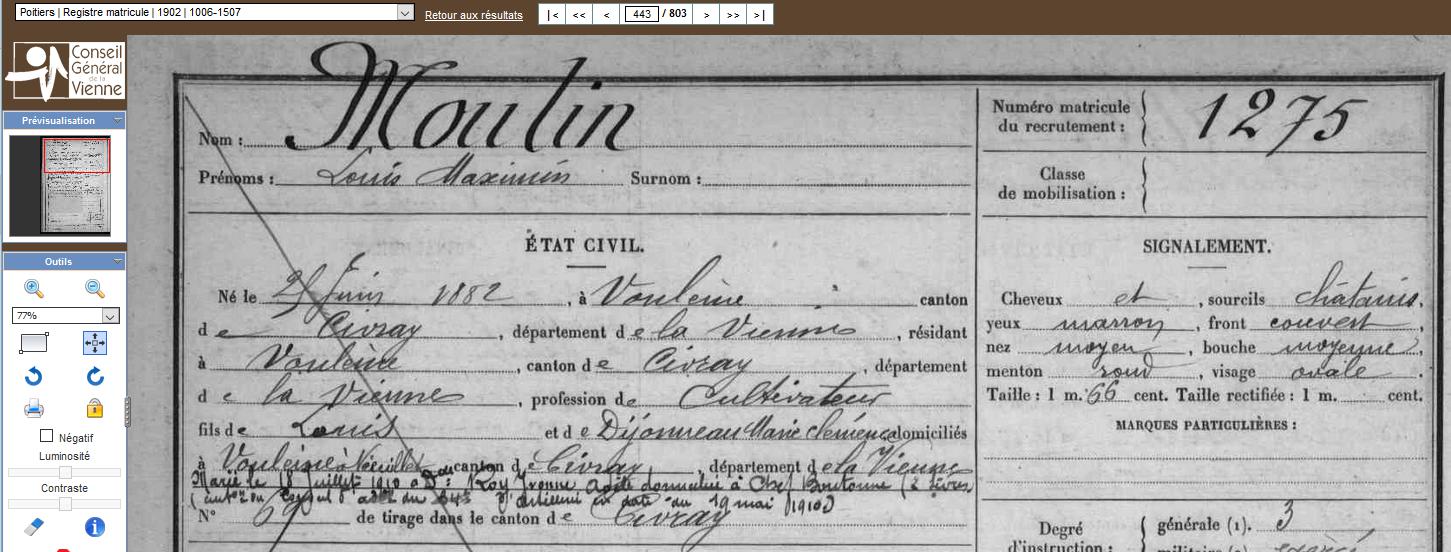 Poitiers | Registre matricule | 1902 | 1006-1507
Retour aux résultats
|< << < 443 / 803 > >> >|
Conseil
Général
de la
Vienne
Prévisualisation
Outils
77%
Négatif
Luminosité
Contraste
Nom : Moulin
Prénoms : Louis Maximin Surnom :
Numéro matricule
du recrutement : 1275
Classe
de mobilisation :
ÉTAT CIVIL.
Né le Juin 1882, à Vouleme canton
de Civray, département de la Vienne, résidant
à Vouleme, canton de Civray, département
de la Vienne, profession de Cultivateur
fils de Louis et de Dijonneau Marie Clémence domiciliés
à Vouleme canton de Civray, département de la Vienne
Marié le 18 Juillet 1910 à Roy Yvonne domiciliée à Chef Boutonne (2 Sèvres)
d'artillerie en date du 19 mai 1910)
N° 69 de tirage dans le canton de Civray
SIGNALEMENT.
Cheveux et, sourcils châtains,
yeux marron, front couvert,
nez moyen, bouche moyenne,
menton rond, visage ovale.
Taille : 1 m. 66 cent. Taille rectifiée : 1 m. cent.
MARQUES PARTICULIÈRES :
Degré
d'instruction :
générale (1). 3